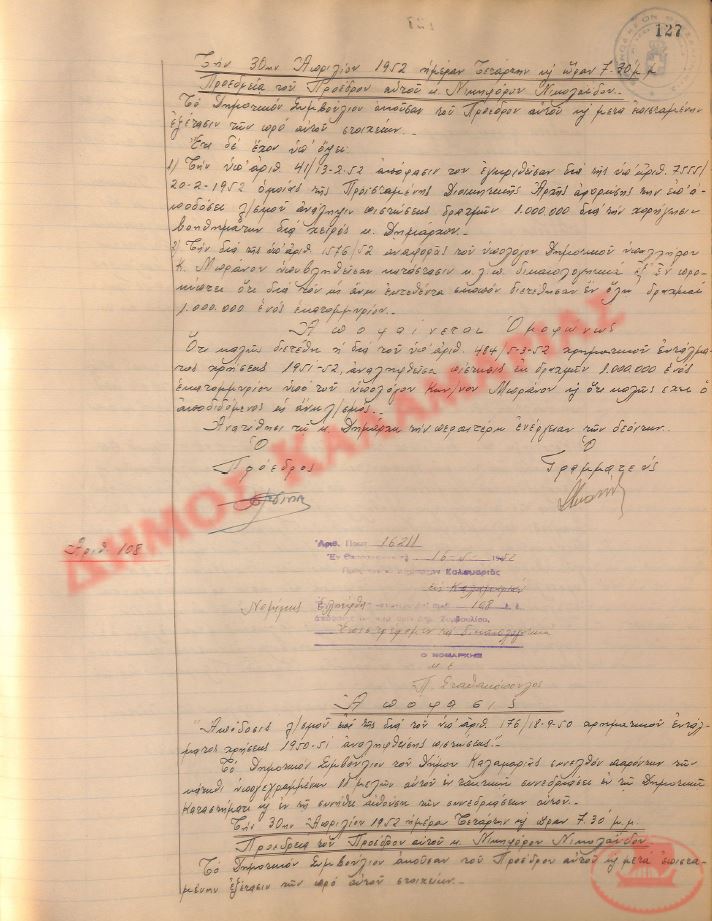 127
Τὴν 30ην Ἀπριλίου 1952 ἡμέραν Τετάρτην κ ὥραν 7.30' μ.μ.
Προεδρεία τοῦ Προέδρου αὐτοῦ κ. Νικηφόρου Νικολαΐδου.
Τὸ Δημοτικὸν Συμβούλιον ἀκοῦσαν τοῦ Προέδρου αὐτοῦ κ μετὰ ἐπισταμένην
ἐξέτασιν τῶν πρὸ αὐτοῦ στοιχείων.
Ἔτι δέ ἔχον ὑπ' ὄψει:
1) Τὴν ὑπ' ἀριθ. 41/13-2-52 ἀπόφασίν του ἐγκριθεῖσαν διὰ τῆς ὑπ' ἀριθ. 7555/
20-2-1952 ὁμοίας τῆς Προϊσταμένης Διοικητικῆς Ἀρχῆς ἀφορώσης τὴν ἐπ' ἀ-
ποδόσει λ/σμοῦ ἀνάληψιν πιστώσεως δραχμῶν 1.000.000 διὰ τὴν χορήγησιν
βοηθημάτων διὰ χειρὸς κ. Δημάρχου.
2) Τὴν διὰ τῆς ὑπ' ἀριθ. 1576/52 ἀναφορᾶς τοῦ ὑπολόγου Δημοτικοῦ ὑπαλλήλου
Κ. Μπράνου ὑποβληθεῖσαν κατάστασιν κ.λ.π. δικαιολογητικά ἐξ ὧν προ-
κύπτει ὅτι διὰ τὸν ὡς ἄνω ἐκτεθέντα σκοπὸν διετέθησαν ἐν ὅλῳ δραχμαί
1.000.000 ἑνὸς ἑκατομμυρίου.
Ἀποφαίνεται Ὁμοφώνως
Ὅτι καλῶς διετέθη ἡ διὰ τοῦ ὑπ' ἀριθ. 484/5-3-52 χρηματικοῦ ἐντάλμα-
τος χρήσεως 1951-52, ἀναληφθεῖσα πίστωσις ἐκ δραχμῶν 1.000.000 ἑνὸς
ἑκατομμυρίου ὑπὸ τοῦ ὑπολόγου Κων/νου Μπράνου κ ὅτι καλῶς ἔχει ὁ
ἀποδιδόμενος ὡς ἄνω λ/σμός.
Ἀνατίθησι τῷ κ. Δημάρχῳ τὴν περαιτέρω ἐνέργειαν τῶν δεόντων.
Ὁ Ὁ
Πρόεδρος Γραμματεύς
ΔΗΜΟΣ ΚΑΛΑΜΑΡΙΑΣ
Ἀριθ. 108
Ἀριθ. Πρωτ. 16211
Ἐν Θεσσαλονίκῃ τῇ 16-5-1952
Καλαμαριᾶς
Καλαμαριάν
Νομίμως 108
Συμβουλίου,
Ἐπιστρέφομεν τὰ δικαιολογητικά
Ο ΝΟΜΑΡΧΗΣ
Μ.Ε.
Π. Σταθακόπουλος
Ἀπόφασις
"Ἀπόδοσις λ/σμοῦ ἐπὶ τῆς διὰ τοῦ ὑπ' ἀριθ. 176/18-9-50 χρηματικοῦ ἐντάλ-
ματος χρήσεως 1950-51 ἀναληφθείσης πιστώσεως".
Τὸ Δημοτικὸν Συμβούλιον τοῦ Δήμου Καλαμαριᾶς συνελθὸν παρόντων τῶν
κάτωθι ὑπογεγραμμένων 11 μελῶν αὐτοῦ ἐν τακτικῇ συνεδριάσει ἐν τῷ Δημοτικῷ
Καταστήματι κ ἐν τῇ συνήθει αἰθούσῃ τῶν συνεδριάσεων αὐτοῦ.
Τὴν 30ην Ἀπριλίου 1952 ἡμέραν Τετάρτην κ ὥραν 7.30' μ.μ.
Προεδρεία τοῦ Προέδρου αὐτοῦ κ. Νικηφόρου Νικολαΐδου.
Τὸ Δημοτικὸν Συμβούλιον ἀκοῦσαν τοῦ Προέδρου αὐτοῦ κ μετὰ ἐπιστα-
μένην ἐξέτασιν τῶν πρὸ αὐτοῦ στοιχείων.